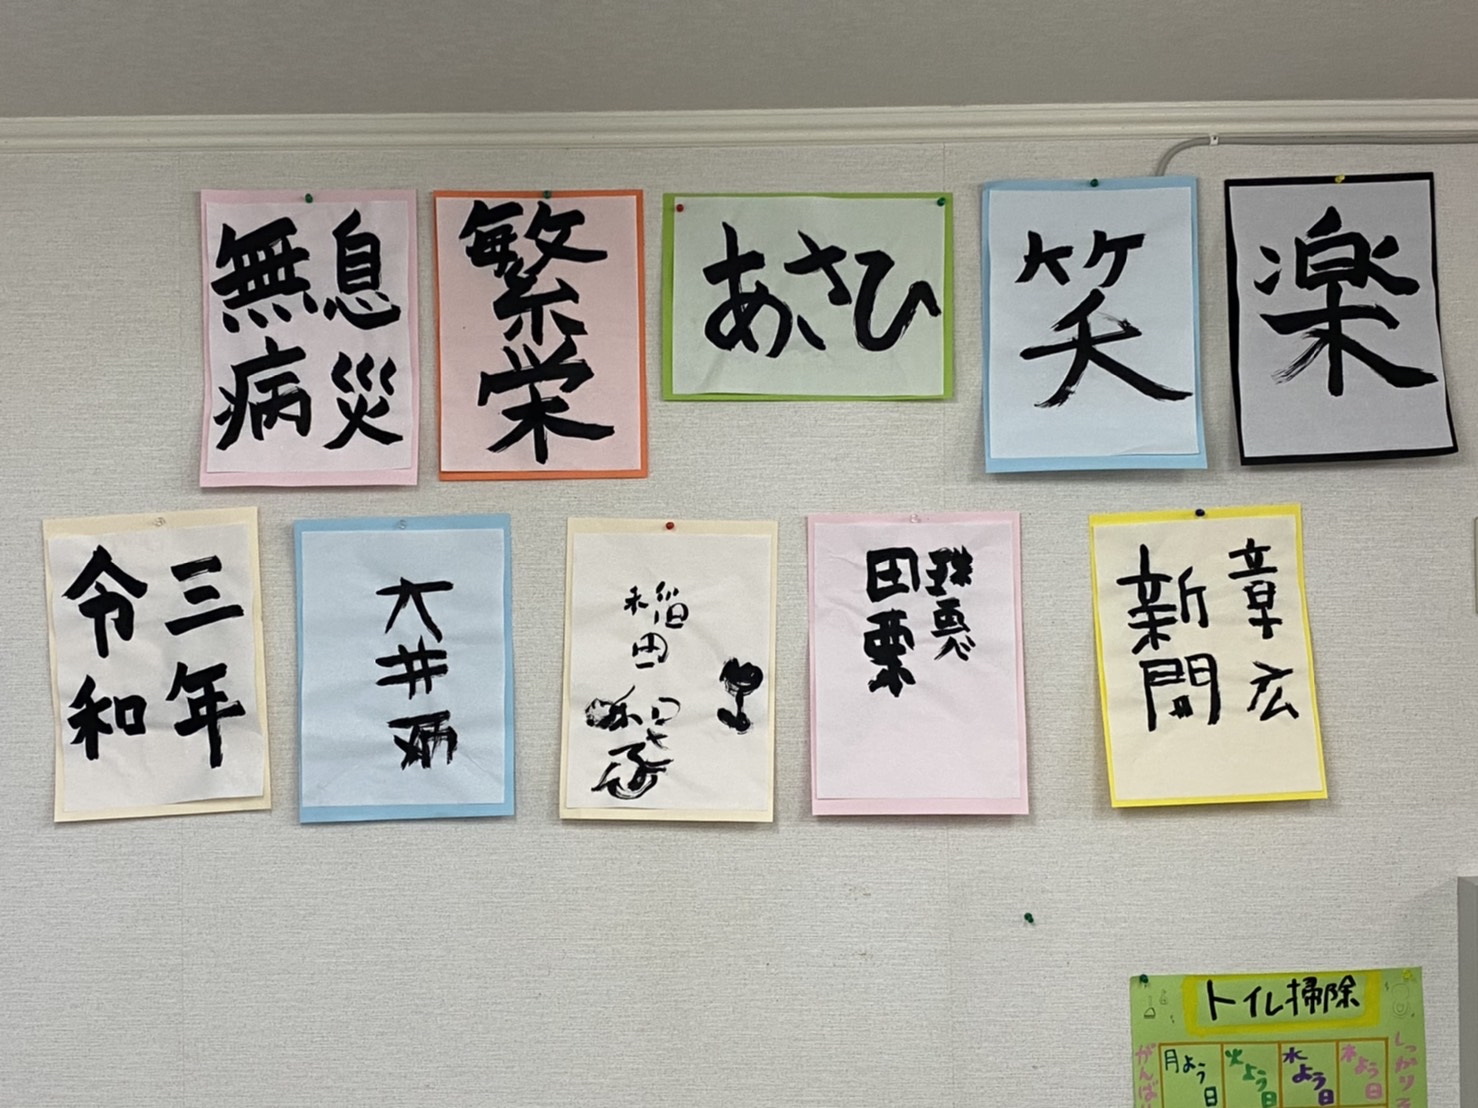 無病
息災
繁栄
あさひ
笑
楽
令和
三年
大井
稲田
田栗
新開
章広
トイレ掃除
月よう日
火よう日
水よう日
木よう日
がんば
しっかり